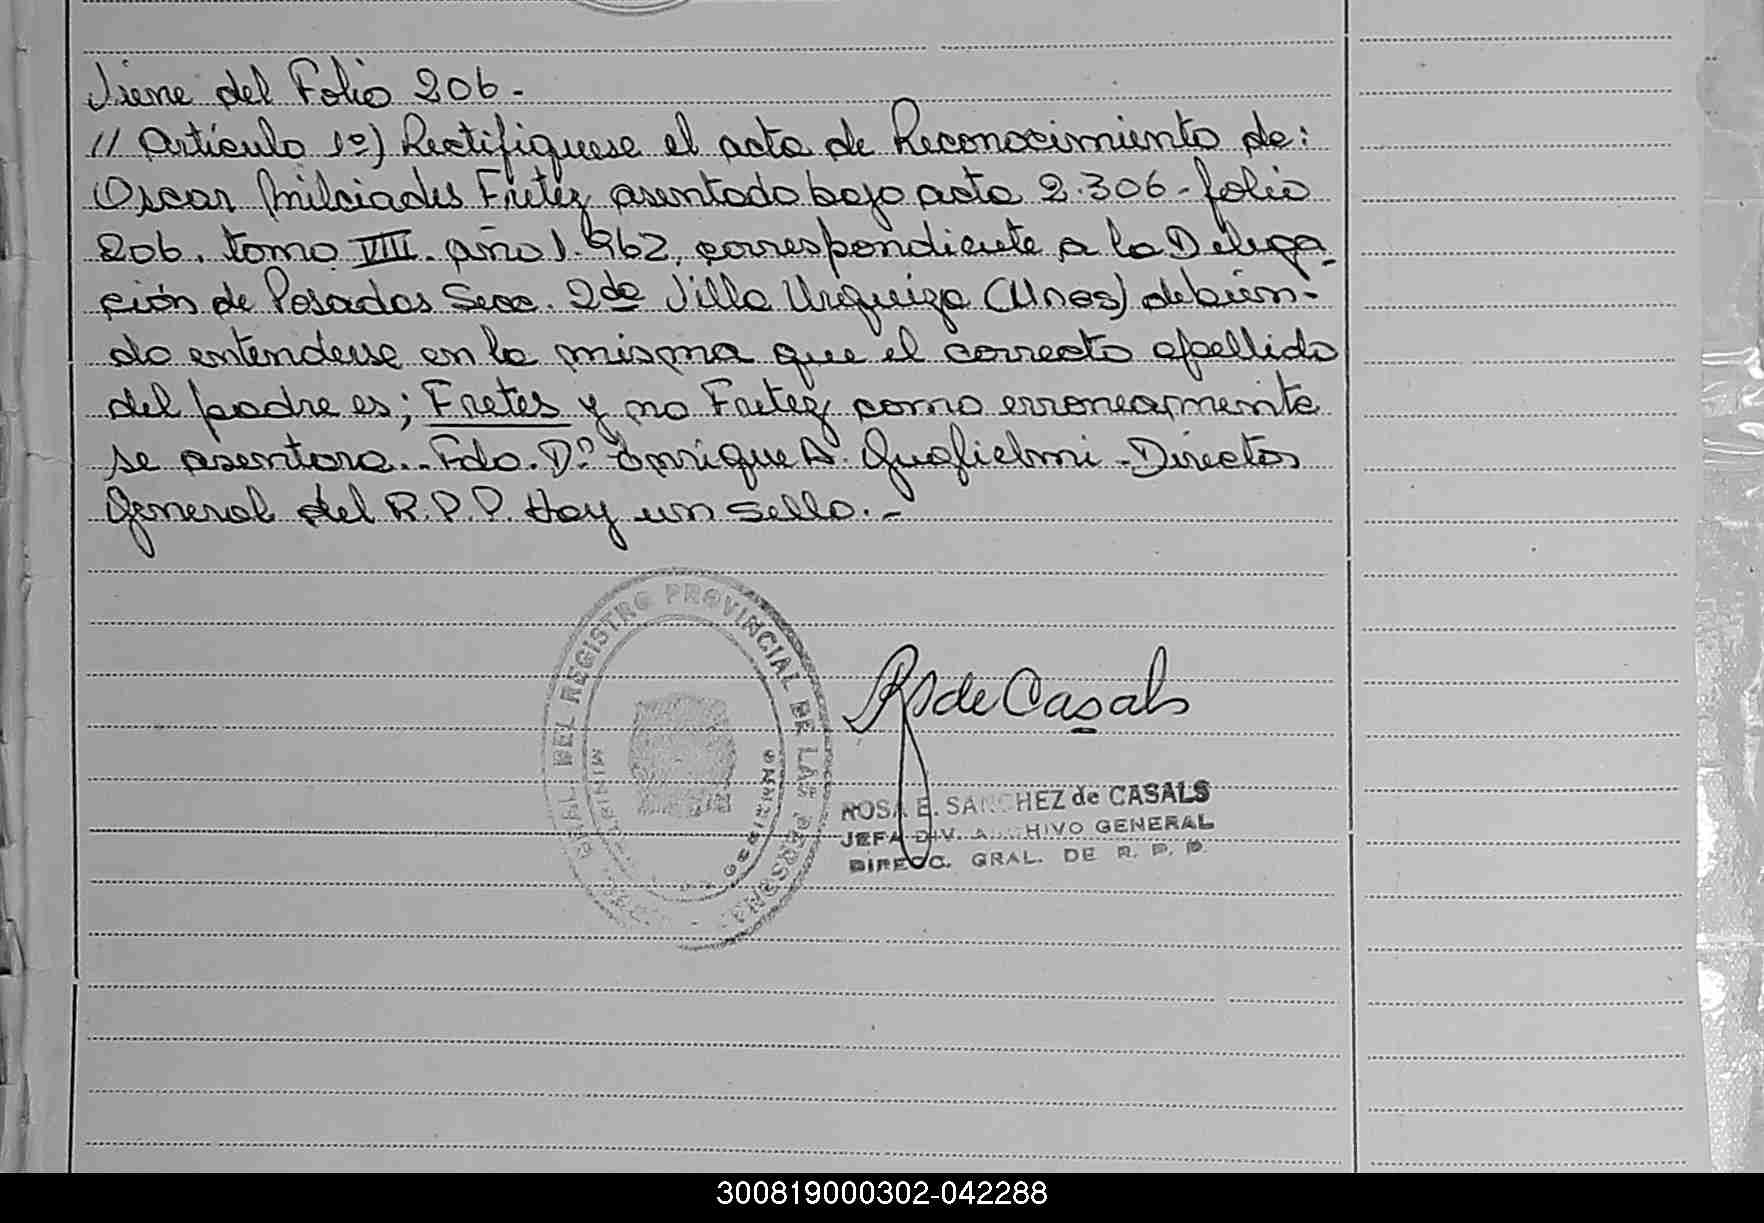 Viene del Folio 206.-
// Artículo 1º) Rectifiquese el acta de Reconocimiento de:
Oscar Milciades Fretez asentado bajo acta 2.306-folio
206. tomo VIII. año 1.962, correspondiente a la Delega-
ción de Posadas Secc. 2da Villa Urquiza (Mnes) debien-
do entenderse en la misma que el correcto apellido
del padre es; Fretes y no Fretez como erronearmente
se asentara.. Fdo. Dº Enrique A. Guglielmi - Director
General del R.P.P. Hay un sello.-
RS de Casals
DEL REGISTRO PROVINCIAL DE LAS PERSONAS
ROSA E. SANCHEZ de CASALS
JEFA DIV. ARCHIVO GENERAL
DIRECC. GRAL. DE R. P. P.
300819000302-042288